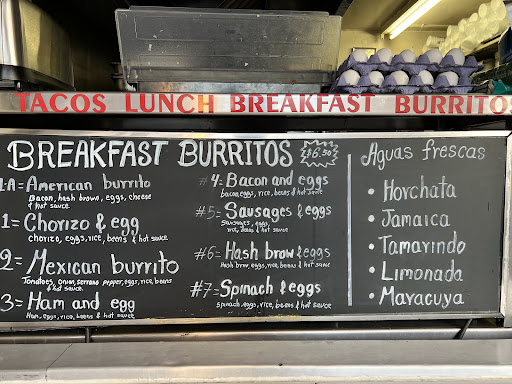 TACOS LUNCH BREAKFAST BURRITOS
BREAKFAST BURRITOS $6.50
1A= American burrito
Bacon, hash brown, eggs, cheese
& hot sauce
1= Chorizo & egg
chorizo, eggs, rice, beans & hot sauce
2= Mexican burrito
Tomatoes, onion, serrano pepper, eggs, rice, beans
& hot sauce
3= Ham and egg
Ham, eggs, rice, beans & hot sauce
#4= Bacon and eggs
bacon, eggs, rice, beans & hot sauce
#5= Sausages & eggs
Sausages, eggs,
rice, beans & hot sauce
#6= Hash brow & eggs
Hash brow, eggs, rice, beans & hot sauce
#7= Spinach & eggs
spinach, eggs, rice, beans & hot sauce
Aguas frescas
• Horchata
• Jamaica
• Tamarindo
• Limonada
• Maracuya